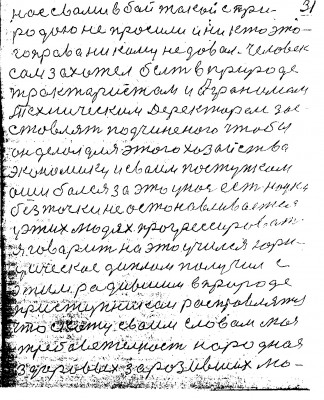 нас с вами в бой такой с при- 31
родою не просили и ни кто это-
го права ни кому не довал. Человек
сам захотел быть в природе
трактаристам и аграномам
Техническим деректаром зос-
товлят подчиненого чтобы
он делол для этого хозайства
экономику и сваим поступком
ошибался за это урок есть наука
без точки не остонавливается
у этих людях прогресировать
я говарит на это учился юри-
дическое диплом получил с
этим радившим в природе
приступником росправляться
что скажу сваим словам моя
требовательность народная
здоровых зарозивших мо-